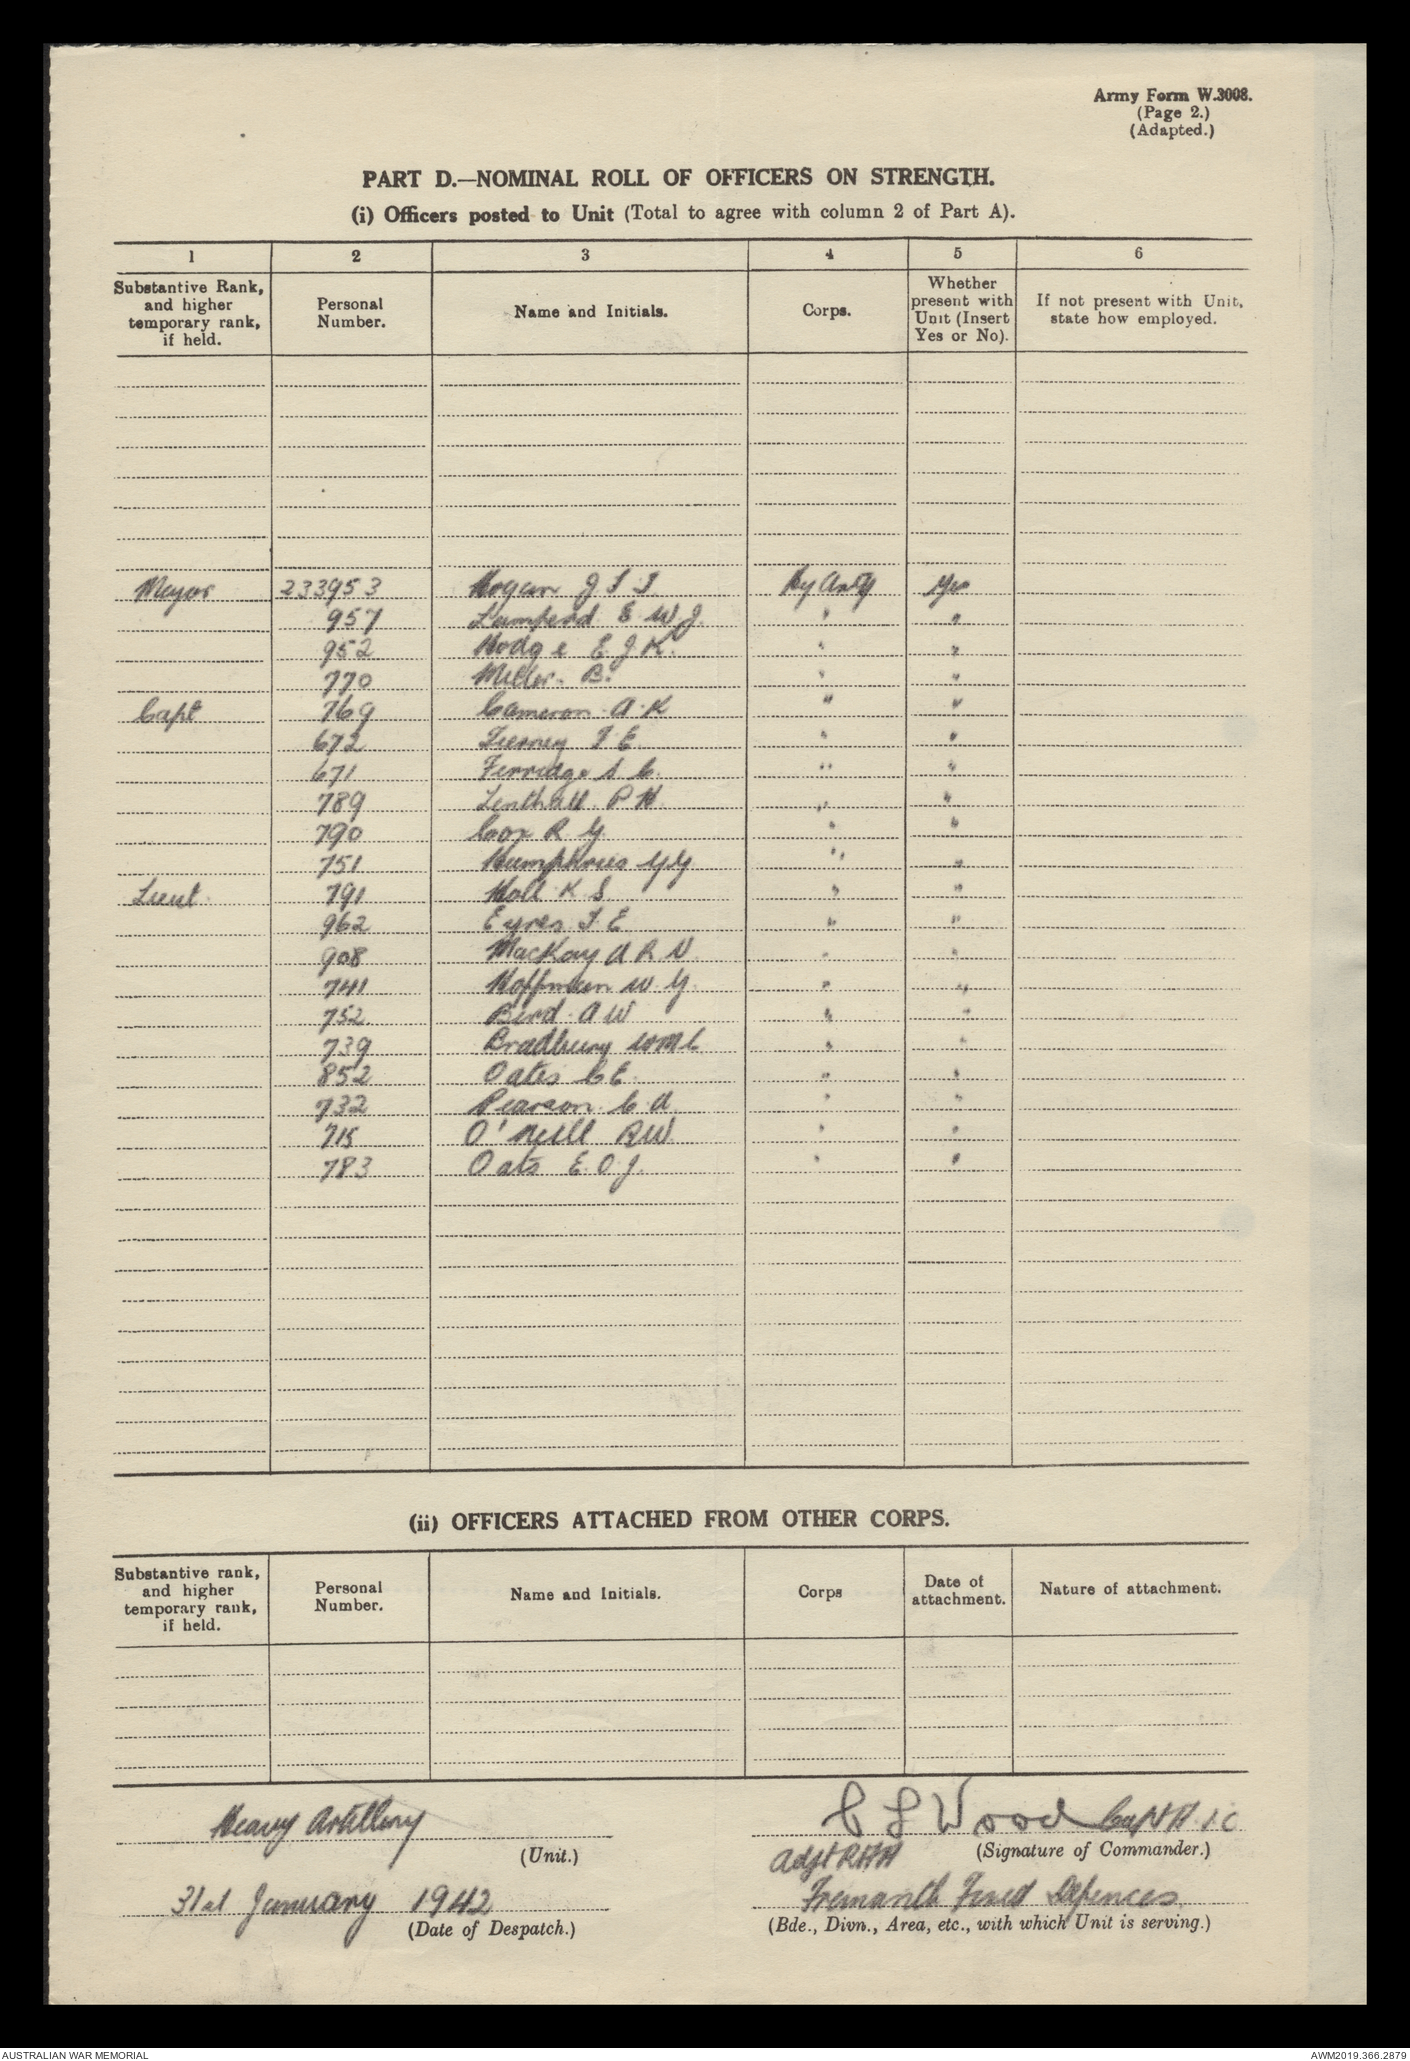 Army Form W.3008.
(Page 2.)
(Adapted.)
PART D.—NOMINAL ROLL OF OFFICERS ON STRENGTH.
(i) Officers posted to Unit (Total to agree with column 2 of Part A).
1 2 3 4 5 6
Substantive Rank, and higher temporary rank, if held. Personal Number. Name and Initials. Corps. Whether present with Unit (Insert Yes or No). If not present with Unit, state how employed.
Major 233953 Hogan J Hy Arty Yes
957 E W J " "
952 Hodge E J K. " "
770 Miller. B. " "
Capt 769 Cameron A. K " "
672 Tierney T E. " "
671 Ferridge S C. " "
789 Lenthall P H. " "
790 Cox R G. " "
751 Humphries G G " "
Lieut. 791 Hall K S " "
962 Eyres T E " "
908 MacKay A R N " "
741 Hoffman W G. " "
752 Bird A W " "
739 Bradbury W M C " "
852 Oates C E. " "
732 Pearson C A. " "
715 O'Neill R W. " "
783 Oats E O J. " "
(ii) OFFICERS ATTACHED FROM OTHER CORPS.
Substantive rank, and higher temporary rank, if held. Personal Number. Name and Initials. Corps Date of attachment. Nature of attachment.
Heavy Artillery
(Unit.)
C L Wood Capt
Adjt RAA
(Signature of Commander.)
31st January 1942
(Date of Despatch.)
Fremantle Fixed Defences
(Bde., Divn., Area, etc., with which Unit is serving.)
AUSTRALIAN WAR MEMORIAL
AWM2019.366.2879